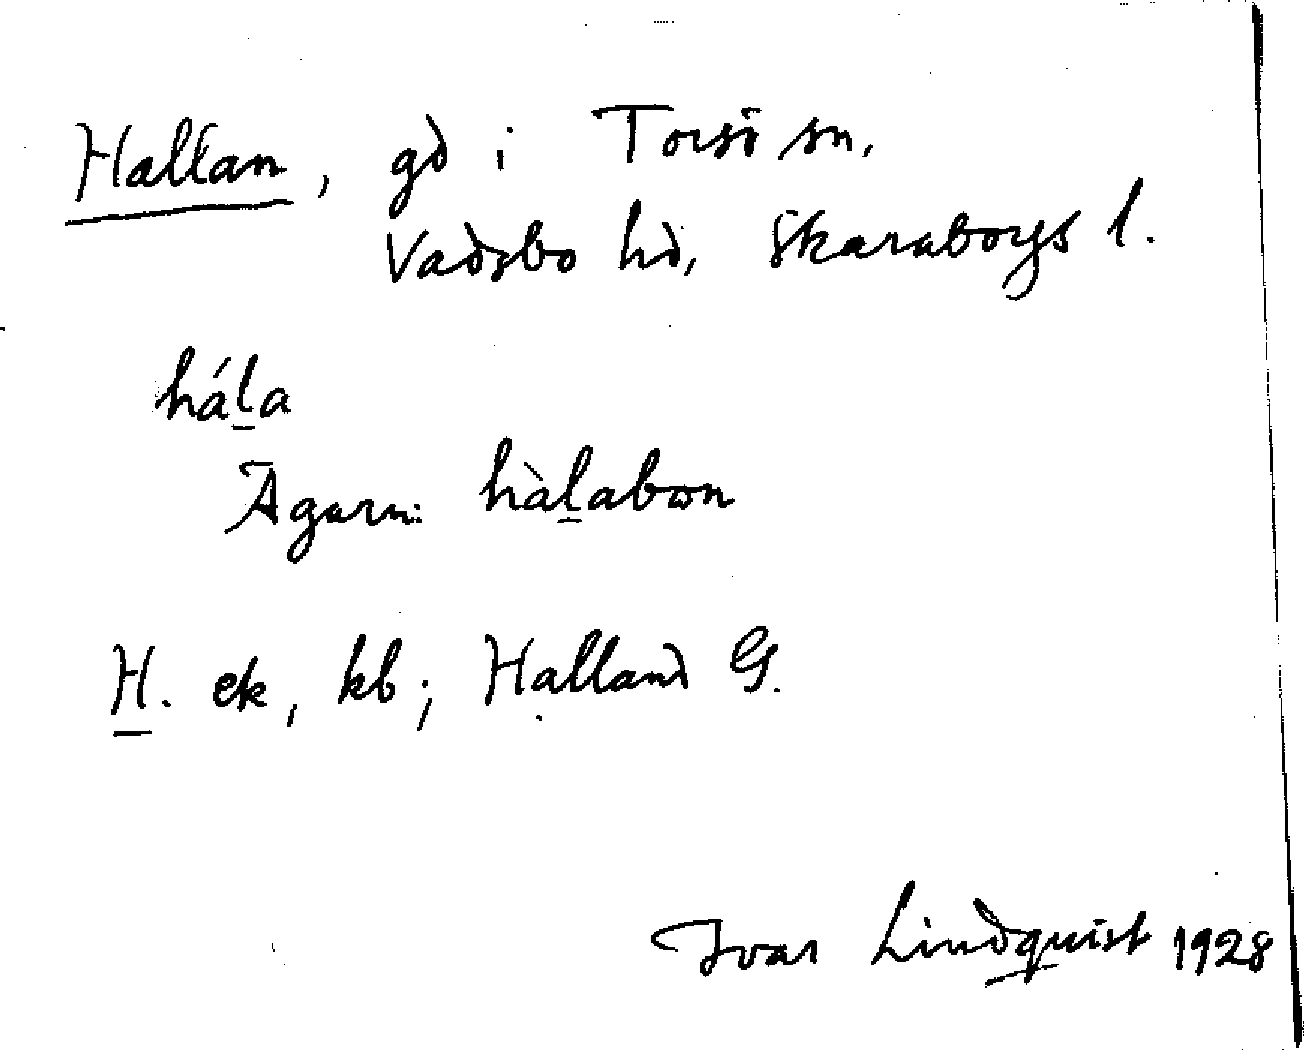 Hallan, gd i Torsö sn,
Vadsbo hd, Skaraborgs l.
háḻa
Ägarn: hàḻabon
H. ek, kb; Halland G.
Ivar Lindquist 1928